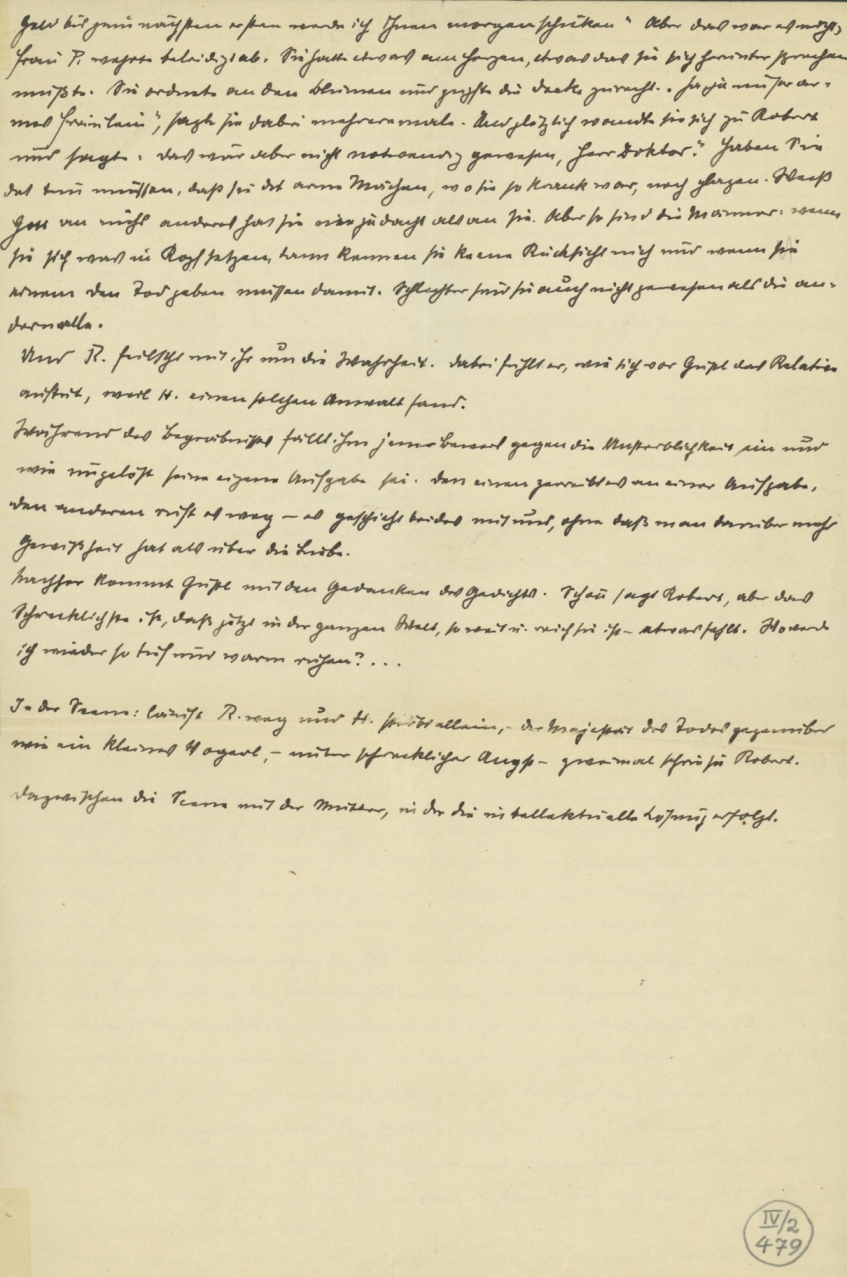 Geld bis zum nächsten ersten werde ich Ihnen morgen schicken" Aber das war es nicht,
Frau P. wehrte beleidigt ab. Sie hatte etwas am Herzen, etwas das sie sich herunter sprechen
mußte. Sie ordnete an den Blumen und zupfte die Decke zurecht. unser ar-
mes Fräulein", sagte sie dabei mehreremale. Und plötzlich wandte sie sich zu Robert
und sagte: das wär aber nicht notwendig gewesen, Herr Doktor! Haben Sie
det tun müssen, daß sie det arme Mächen, wo sie so krank war, noch plagen. Weiß
Gott an nichts anderes hat sie nie jedacht als an Sie. Aber so sind die Männer: wenn
sie sich was in Kopf setzen, dann kennen sie keene Rücksicht nich und wenn sie
einem den Tod geben müssen damit. Schlechter sind sie auch nicht gewesen als die an-
dern alle.
Und R. feilscht mit ihr um die Wahrheit. Dabei fühlt er, wie sich vor Gustl das Relative
auftut, weil H. einen solchen Anwalt fand.
Während des Begräbnisses fällt ihm jener Beweis gegen die Unsterblichkeit ein und
wie ungelöst seine eigene Aufgabe sei. Den einen zerreibt es an einer Aufgabe,
den anderen reißt es weg – es geschieht beides mit uns, ohne daß man darüber mehr
Gewißheit hat als über die Liebe.
Nachher kommt Gustl mit den Gedanken des Gedichts. Schau sagt Robert, aber das
Schrecklichste ist, daß jetzt in der ganzen Welt, so weit u. reich sie ist – etwas fehlt. Wo werde
ich wieder so tief und warm ruhen? . . .
In der Scene: läuft R. weg und H. stirbt allein, – der Majestät des Todes gegenüber
wie ein kleines Vogerl, – unter schrecklicher Angst – zweimal schrie sie Robert.
Dazwischen die Scene mit der Mutter, in der die intellektuelle Lösung erfolgt.
IV/2
479